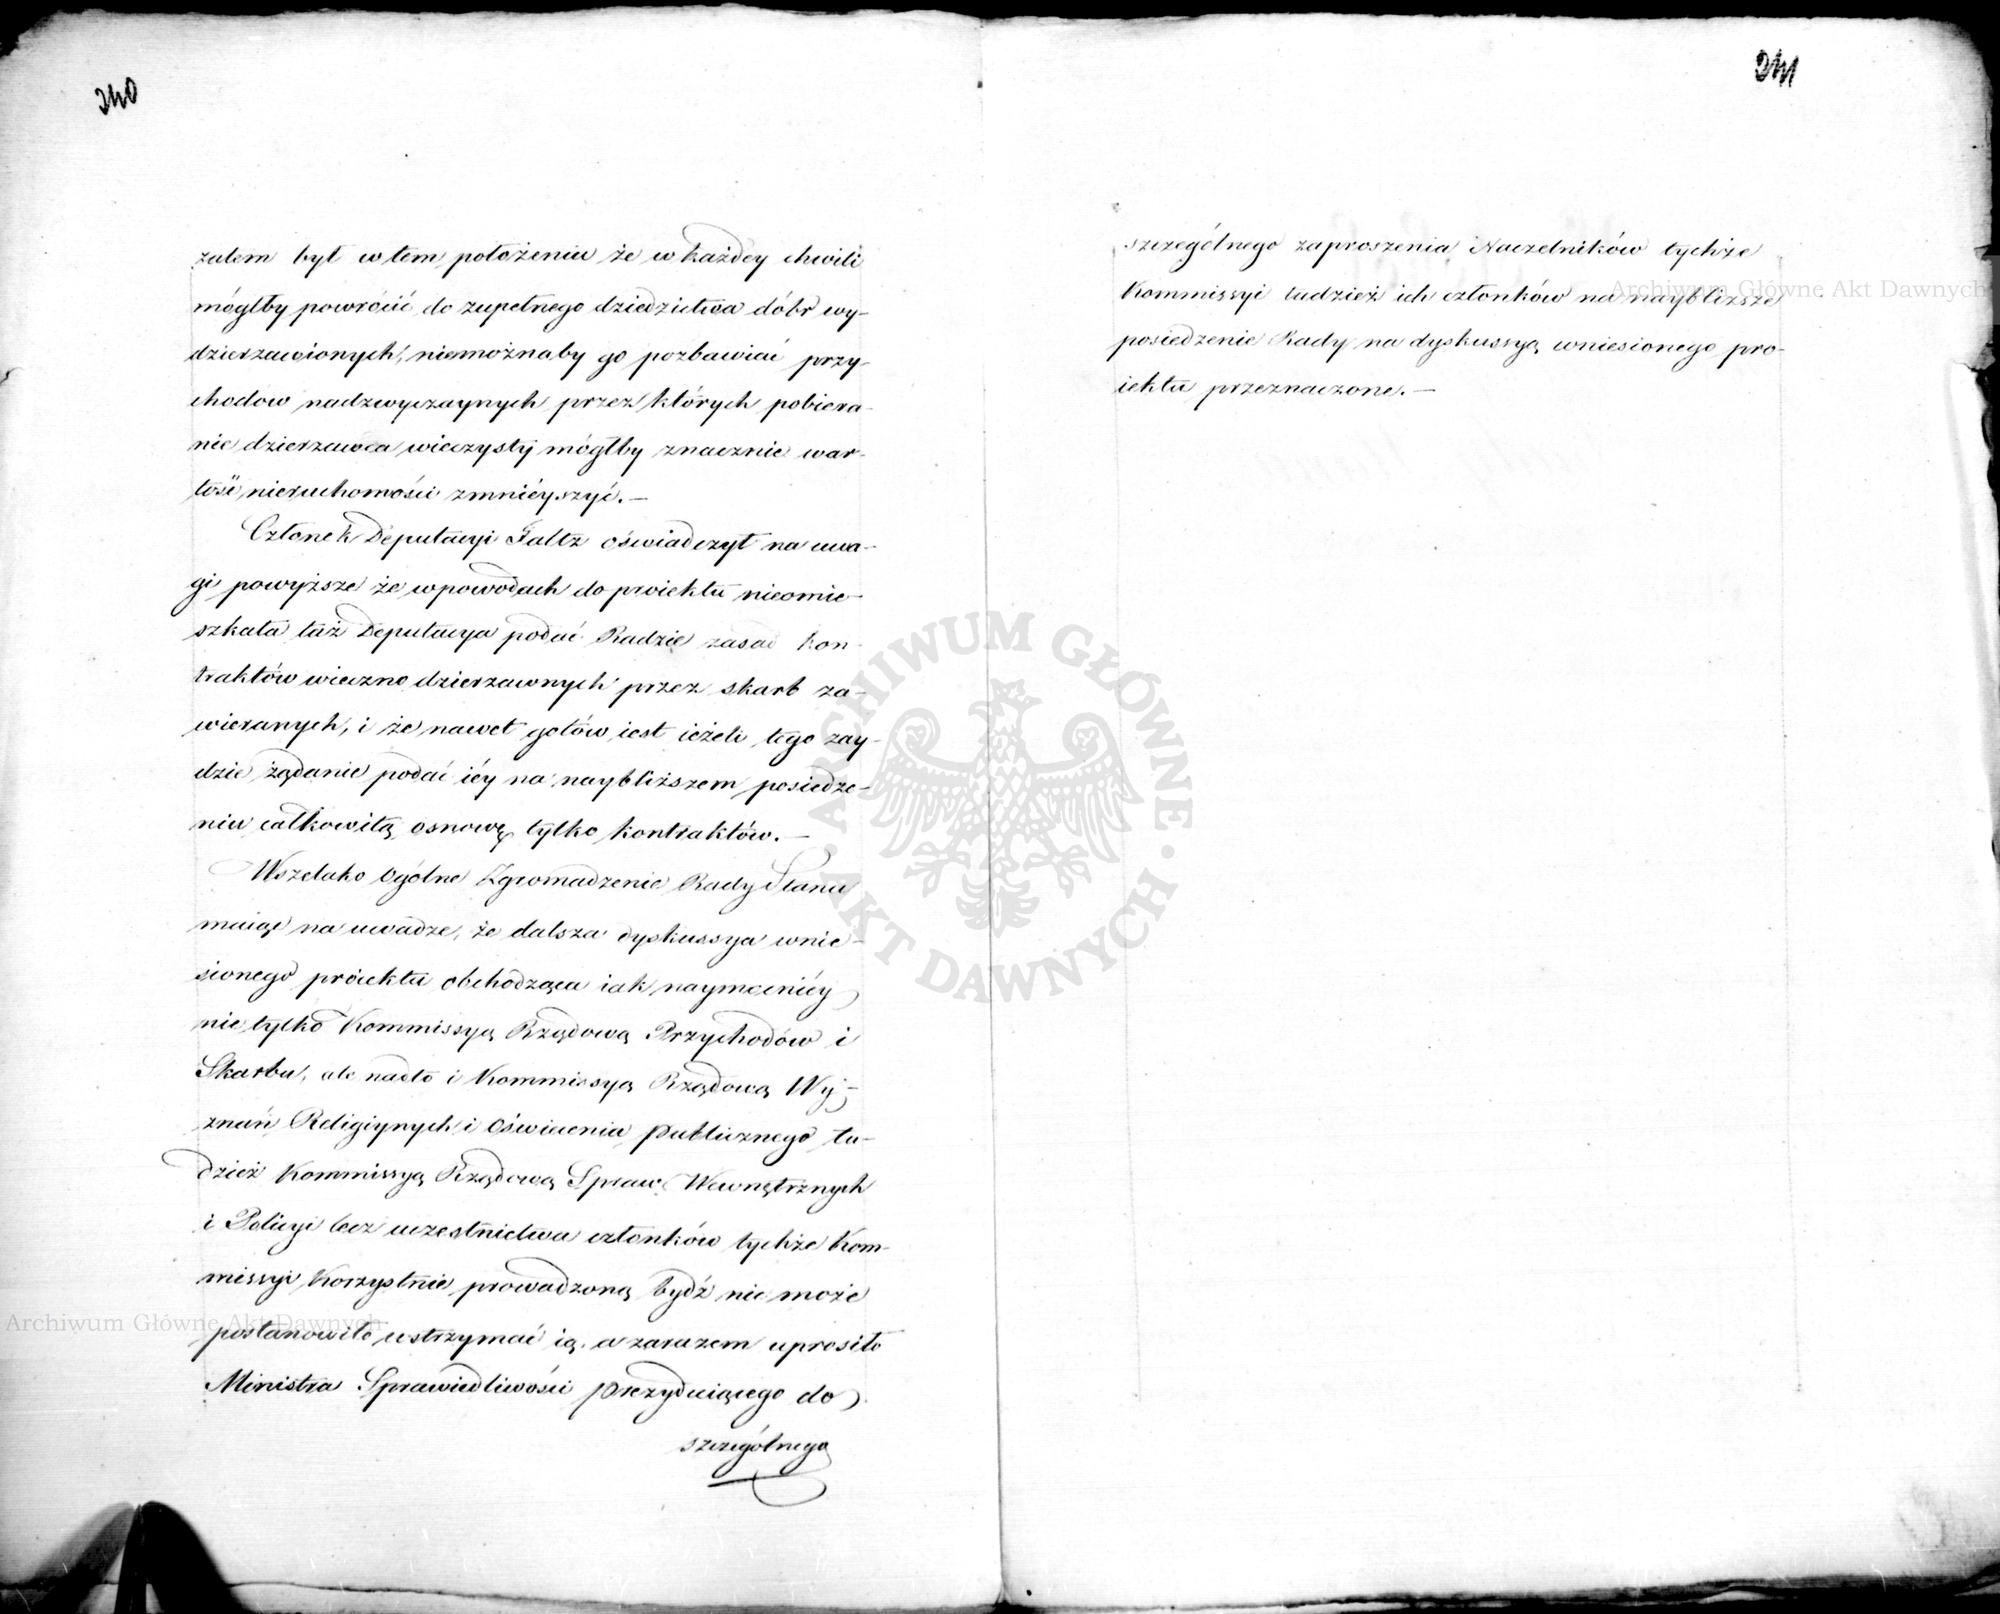 240
zatem był w tem położeniu że w każdey chwili
mógłby powrócić do zupełnego dziedzictwa dóbr wy-
dzierzawionych, niemożnaby go pozbawiać przy-
chodów nadzwyczaynych przez których pobiera-
nie dzierzawca wieczysty mógłby znacznie war-
tość nieruchomości zmnieyszyć.—
Członek Deputacyi Faltz oświadczył na uwa-
gi powyższe że w powodach do proiektu nieomie-
szkała taż Deputacya podać Radzie zasad kon-
traktów wieczno dzierzawnych przez skarb za-
wieranych, i że nawet gotów iest ieżeli tego zay-
dzie żądanie podać iéy na naybliższem posiedze-
niu całkowitą osnowę tylko kontraktów.—
Wszelako Ogólne Zgromadzenie Rady Stanu
maiąc na uwadze, że dalsza dyskussya wnie-
sionego proiektu obchodząca iak naymocniéy
nie tylko Kommissyą Rządową Przychodów i
Skarbu, ale nadto i Kommissyą Rządową Wy-
znań Religiynych i Oświecenia Publicznego tu-
dzież Kommissyą Rządową Spraw Wewnętrznych
i Policyi bez uczestnictwa członków tychże Kom-
missyi korzystnie prowadzoną bydź nie może
postanowiło wstrzymać ią, a zarazem uprosiło
Ministra Sprawiedliwości prezyduiącego do
szczególnego
241
szczególnego zaproszenia Naczelników tychże
Kommissyi tudzież ich członków na naybliższe
posiedzenie Rady na dyskussyą wniesionego pro-
iektu przeznaczone.—
Archiwum Główne Akt Dawnych
Archiwum Główne Akt Dawnych
ARCHIWUM GŁÓWNE
AKT DAWNYCH